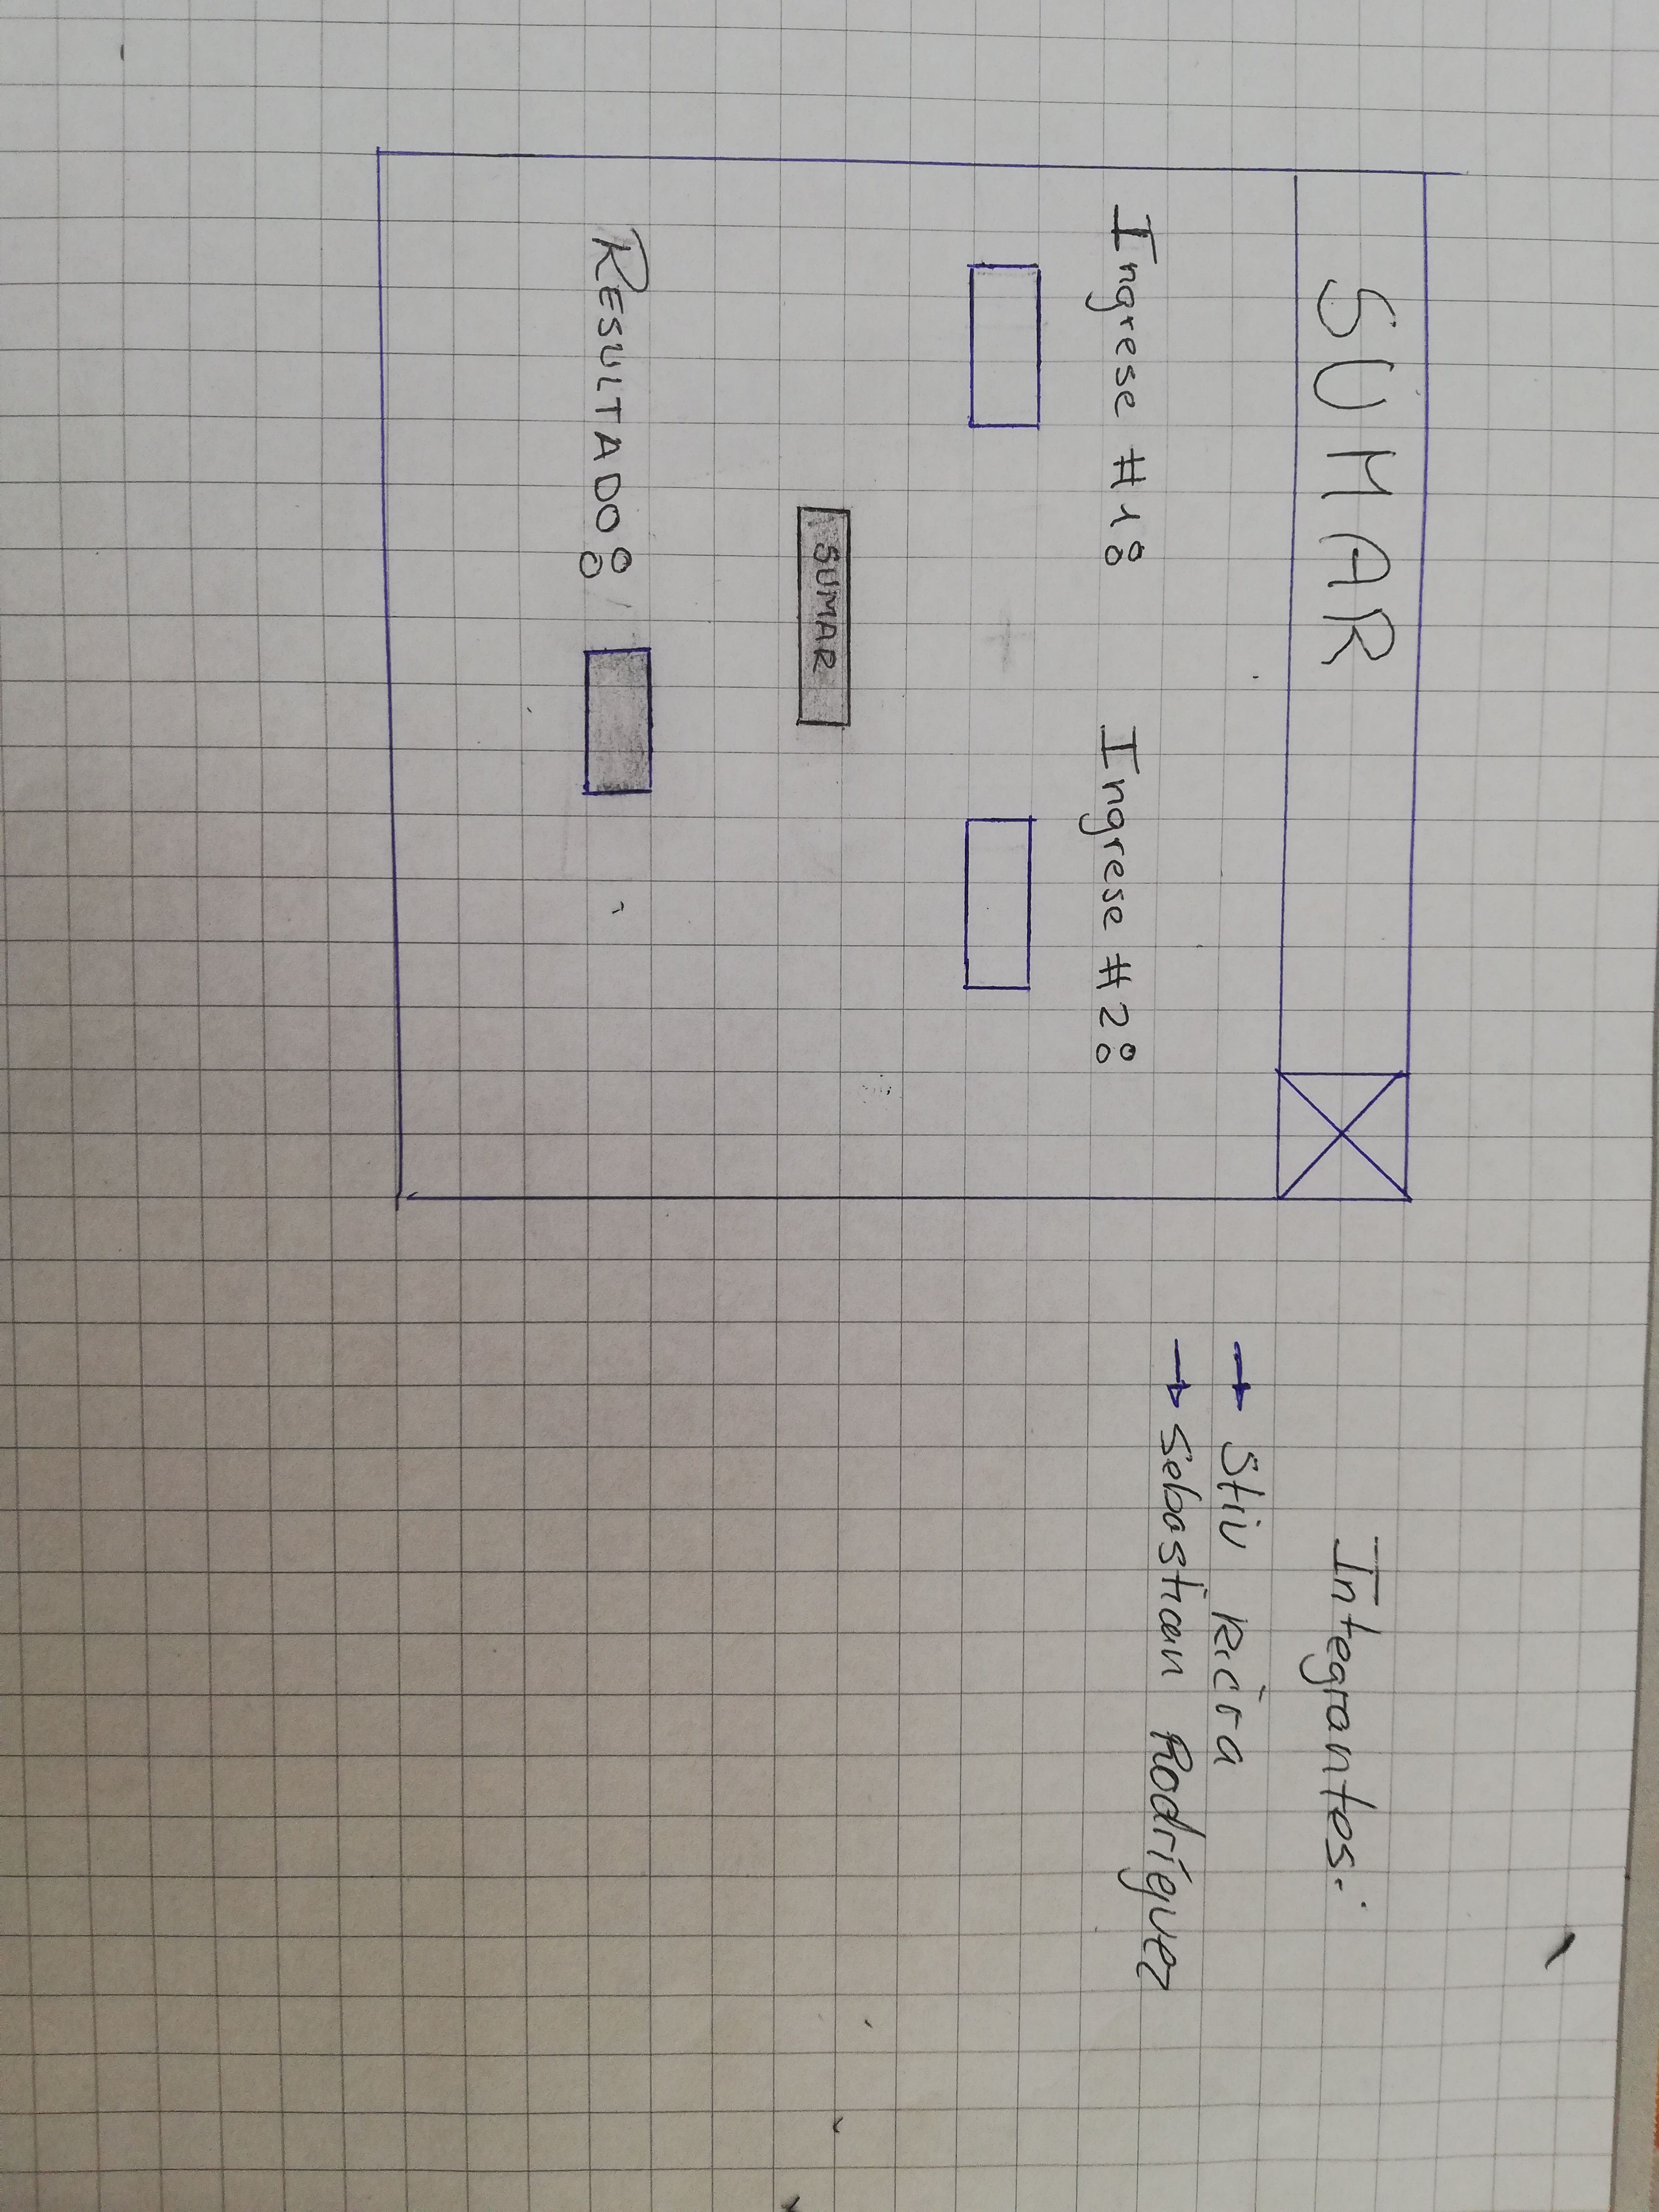 SUMAR
Ingrese #1:
Ingrese #2:
SUMAR
RESULTADO:
Integrantes:
→ Stiv
→ Sebastian Rodríguez